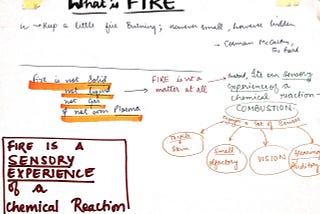 What is FIRE
Keep a little fire burning; however small, however hidden
- Cormac McCarthy,
The Road
Fire is not Solid
not Liquid
not Gas
not even Plasma
FIRE is not a
matter at all
Instead, Its our Sensory
experience of a
chemical reaction
COMBUSTION
Skin
Smell
olfactory
VISION
Hearing
Auditory
FIRE IS A
SENSORY
EXPERIENCE
of a
Chemical Reaction